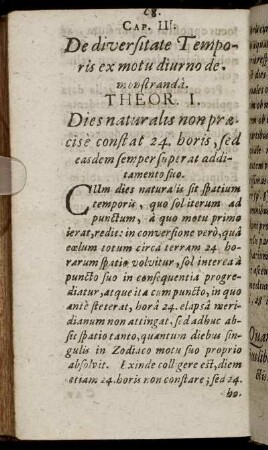 68.
CAP. III.
De diversitate Tempo-
ris ex motu diurno de-
monstrandâ.
THEOR. I.
Dies naturalis non præ-
cisè constat 24. horis, sed
easdem semper superat addi-
tamento suo.
CUm dies naturalis sit spatium
temporis, quo sol iterum ad
punctum, à quo motu primo
ierat, redit: in conversione verò, quâ
cœlum totum circa terram 24 ho-
rarum spatio volvitur, sol interea à
puncto suo in consequentia progre-
diatur, atque ita cum puncto, in quo
antè steterat, horâ 24. elapsâ meri-
dianum non attingat, sed adhuc ab-
sit spatio tanto, quantum diebus sin-
gulis in Zodiaco motu suo proprio
absolvit. Exinde colligere est, diem
etiam 24. horis non constare; sed 24.
ho-